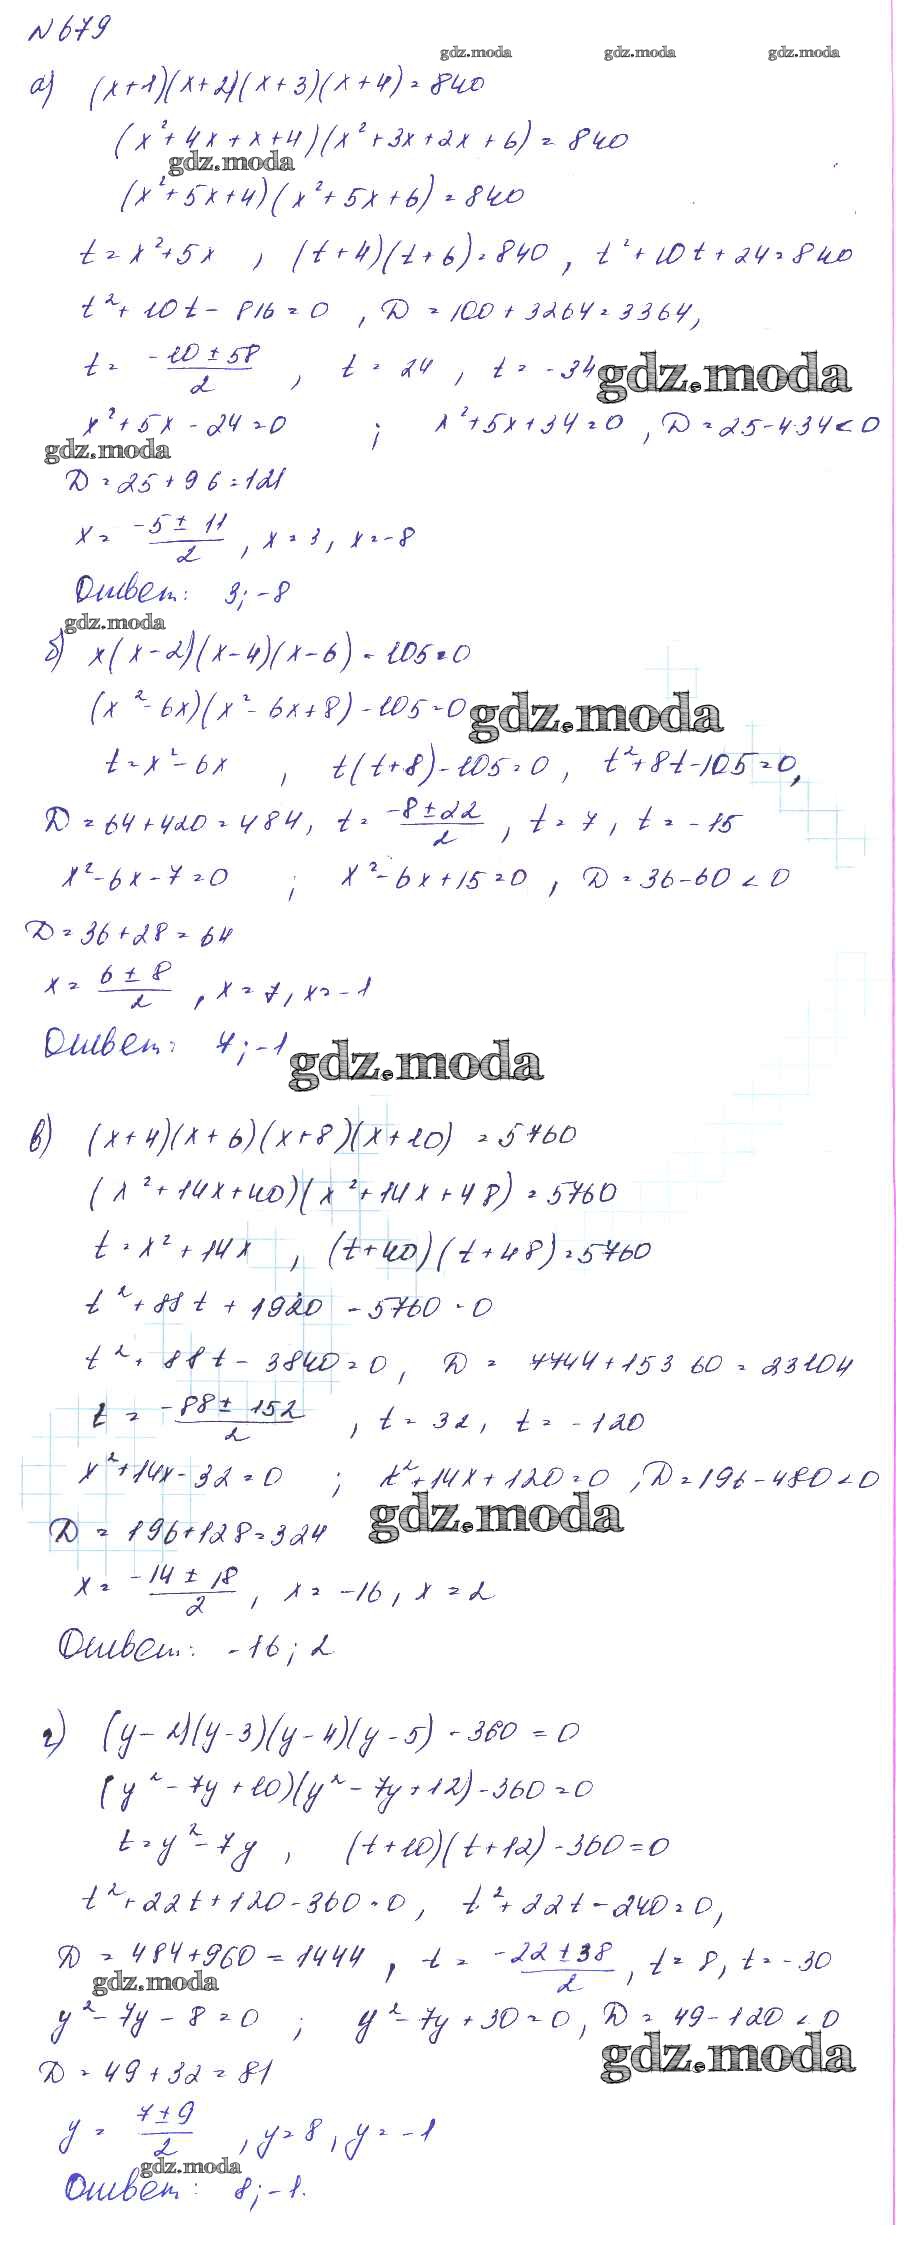 N 679
gdz.moda gdz.moda gdz.moda
а) (x+1)(x+2)(x+3)(x+4)=840
(x²+4x+x+4)(x²+3x+2x+6)=840
gdz.moda
(x²+5x+4)(x²+5x+6)=840
t=x²+5x , (t+4)(t+6)=840, t²+10t+24=840
t²+10t-816=0 , D=100+3264=3364,
t= (-10±58)/2 , t=24 , t=-34
gdz.moda
x²+5x-24=0 ; x²+5x+34=0 , D=25-4·34<0
gdz.moda
D=25+96=121
x= (-5±11)/2 , x=3, x=-8
Ответ: 3;-8
gdz.moda
б) x(x-2)(x-4)(x-6)-105=0
(x²-6x)(x²-6x+8)-105=0
gdz.moda
t=x²-6x , t(t+8)-105=0, t²+8t-105=0,
D=64+420=484, t= (-8±22)/2 , t=7, t=-15
x²-6x-7=0 ; x²-6x+15=0 , D=36-60<0
D=36+28=64
x= (6±8)/2 , x=7, x=-1
Ответ: 7;-1
gdz.moda
в) (x+4)(x+6)(x+8)(x+10)=5760
(x²+14x+40)(x²+14x+48)=5760
t=x²+14x , (t+40)(t+48)=5760
t²+88t+1920-5760=0
t²+88t-3840=0, D=7744+15360=23104
t= (-88±152)/2 , t=32, t=-120
x²+14x-32=0 ; x²+14x+120=0 , D=196-480<0
gdz.moda
D=196+128=324
x= (-14±18)/2 , x=-16, x=2
Ответ: -16; 2
г) (y-2)(y-3)(y-4)(y-5)-360=0
(y²-7y+10)(y²-7y+12)-360=0
t=y²-7y , (t+10)(t+12)-360=0
t²+22t+120-360=0, t²+22t-240=0,
D=484+960=1444 , t= (-22±38)/2 , t=8, t=-30
gdz.moda
y²-7y-8=0 ; y²-7y+30=0, D=49-120<0
gdz.moda
D=49+32=81
y= (7±9)/2 , y=8, y=-1
gdz.moda
Ответ: 8;-1.